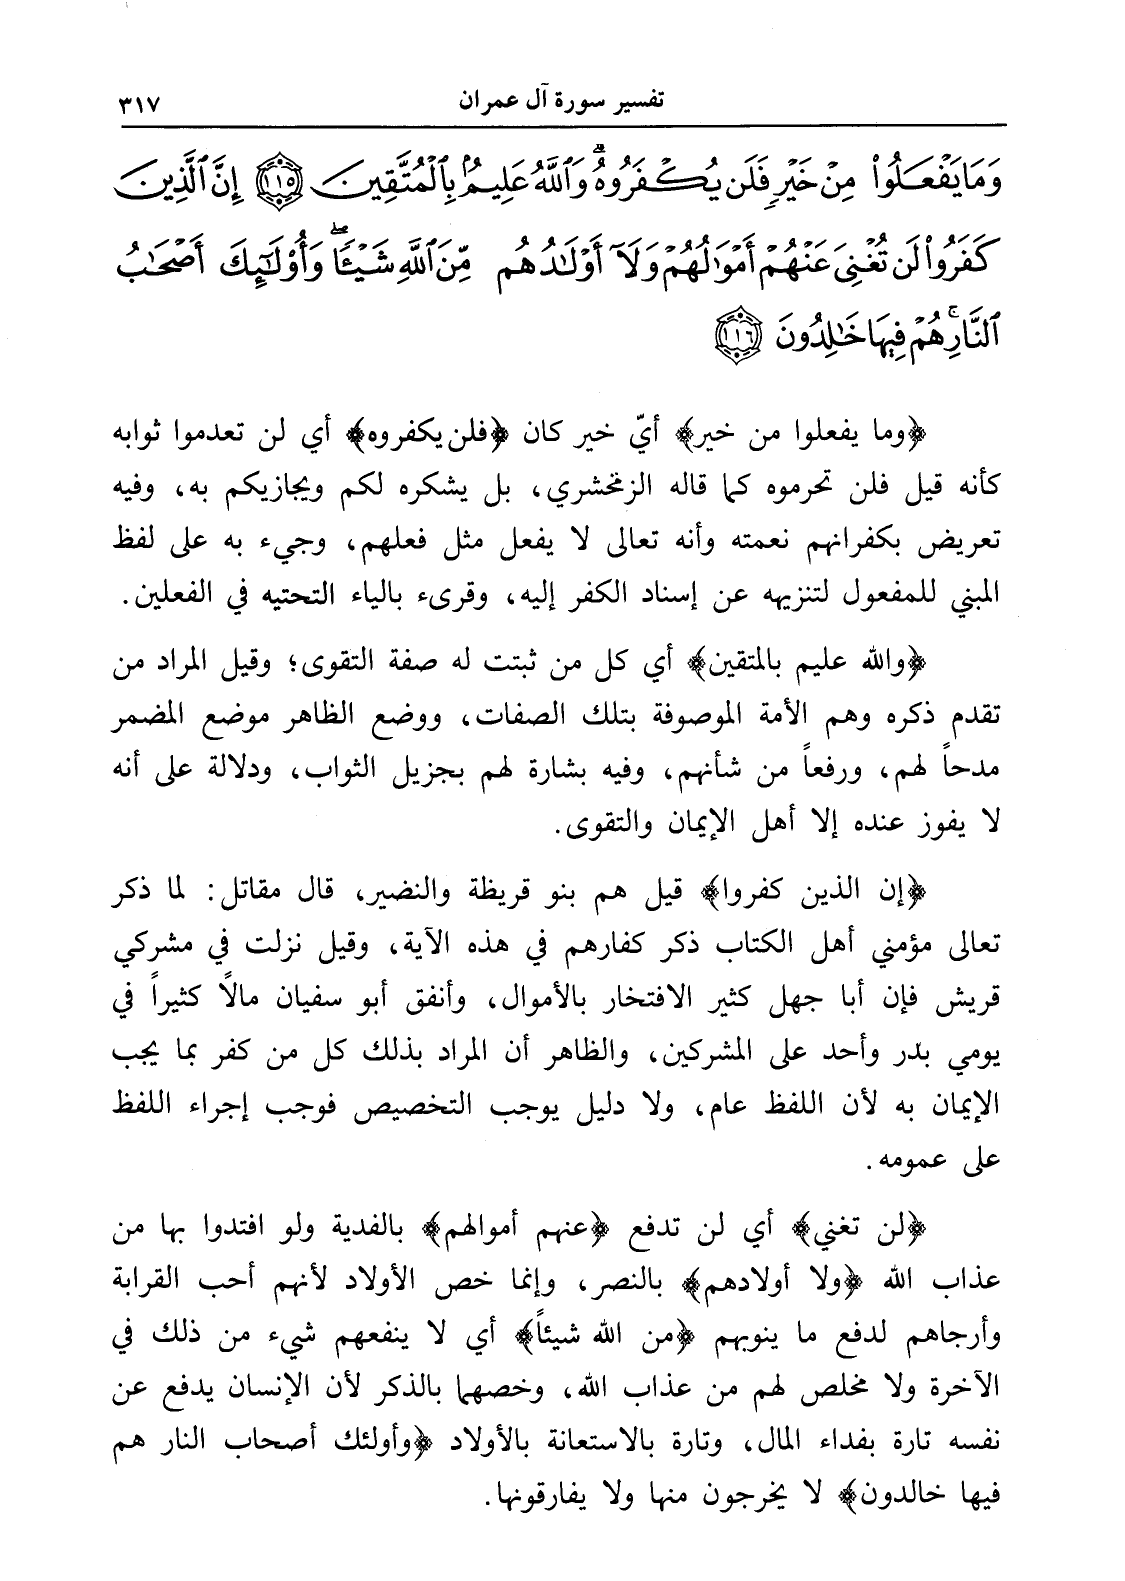 تفسير سورة آل عمران ٣١٧
وَمَا يَفْعَلُوا۟ مِنْ خَيْرٍ فَلَن يُكْفَرُوهُ ۗ وَٱللَّهُ عَلِيمٌۢ بِٱلْمُتَّقِينَ ١١٥ إِنَّ ٱلَّذِينَ
كَفَرُوا۟ لَن تُغْنِىَ عَنْهُمْ أَمْوَٰلُهُمْ وَلَآ أَوْلَٰدُهُم مِّنَ ٱللَّهِ شَيْـًٔا ۖ وَأُو۟لَٰٓئِكَ أَصْحَٰبُ
ٱلنَّارِ ۚ هُمْ فِيهَا خَٰلِدُونَ ١١٦
﴿وما يفعلوا من خير﴾ أيّ خير كان ﴿فلن يكفروه﴾ أي لن تعدموا ثوابه
كأنه قيل فلن تحرموه كما قاله الزمخشري، بل يشكره لكم ويجازيكم به، وفيه
تعريض بكفرانهم نعمته وأنه تعالى لا يفعل مثل فعلهم، وجيء به على لفظ
المبني للمفعول لتنزيهه عن إسناد الكفر إليه، وقرىء بالياء التحتيه في الفعلين.
﴿والله عليم بالمتقين﴾ أي كل من ثبتت له صفة التقوى؛ وقيل المراد من
تقدم ذكره وهم الأمة الموصوفة بتلك الصفات، ووضع الظاهر موضع المضمر
مدحاً لهم، ورفعاً من شأنهم، وفيه بشارة لهم بجزيل الثواب، ودلالة على أنه
لا يفوز عنده إلا أهل الإيمان والتقوى.
﴿إن الذين كفروا﴾ قيل هم بنو قريظة والنضير، قال مقاتل: لما ذكر
تعالى مؤمني أهل الكتاب ذكر كفارهم في هذه الآية، وقيل نزلت في مشركي
قريش فإن أبا جهل كثير الافتخار بالأموال، وأنفق أبو سفيان مالاً كثيراً في
يومي بدر وأحد على المشركين، والظاهر أن المراد بذلك كل من كفر بما يجب
الإيمان به لأن اللفظ عام، ولا دليل يوجب التخصيص فوجب إجراء اللفظ
على عمومه.
﴿لن تغني﴾ أي لن تدفع ﴿عنهم أموالهم﴾ بالفدية ولو افتدوا بها من
عذاب الله ﴿ولا أولادهم﴾ بالنصر، وإنما خص الأولاد لأنهم أحب القرابة
وأرجاهم لدفع ما ينوبهم ﴿من الله شيئاً﴾ أي لا ينفعهم شيء من ذلك في
الآخرة ولا مخلص لهم من عذاب الله، وخصهما بالذكر لأن الإنسان يدفع عن
نفسه تارة بفداء المال، وتارة بالاستعانة بالأولاد ﴿وأولئك أصحاب النار هم
فيها خالدون﴾ لا يخرجون منها ولا يفارقونها.